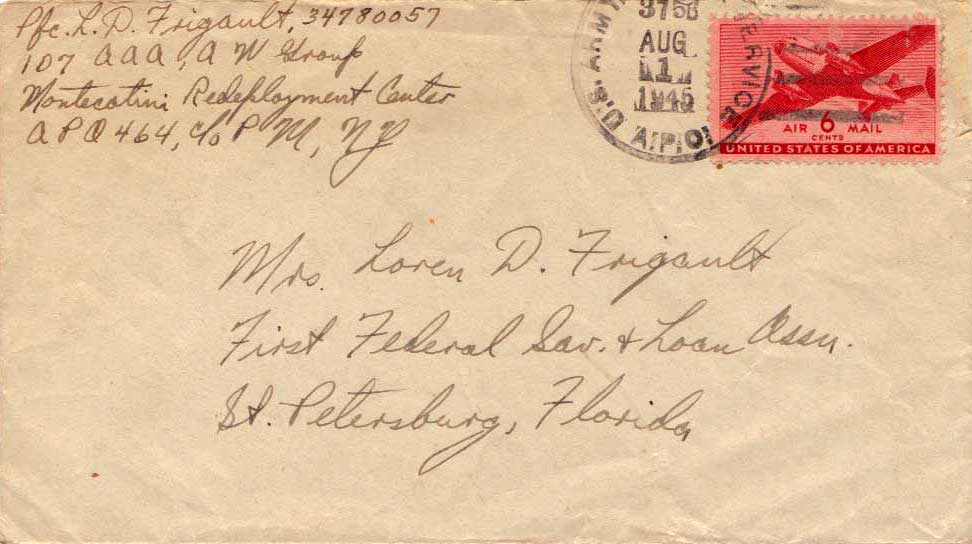 Pfc. L. D. Frigault, 34780057
107 AAA, AW Group
Montecatini Redeployment Center
APO 464, c/o PM, NY
U.S. ARMY SERVICE
AUG
1
1945
A.P.O.
AIR 6 MAIL
CENTS
UNITED STATES OF AMERICA
Mrs. Loren D. Frigault
First Federal Sav. + Loan Assn.
St. Petersburg, Florida